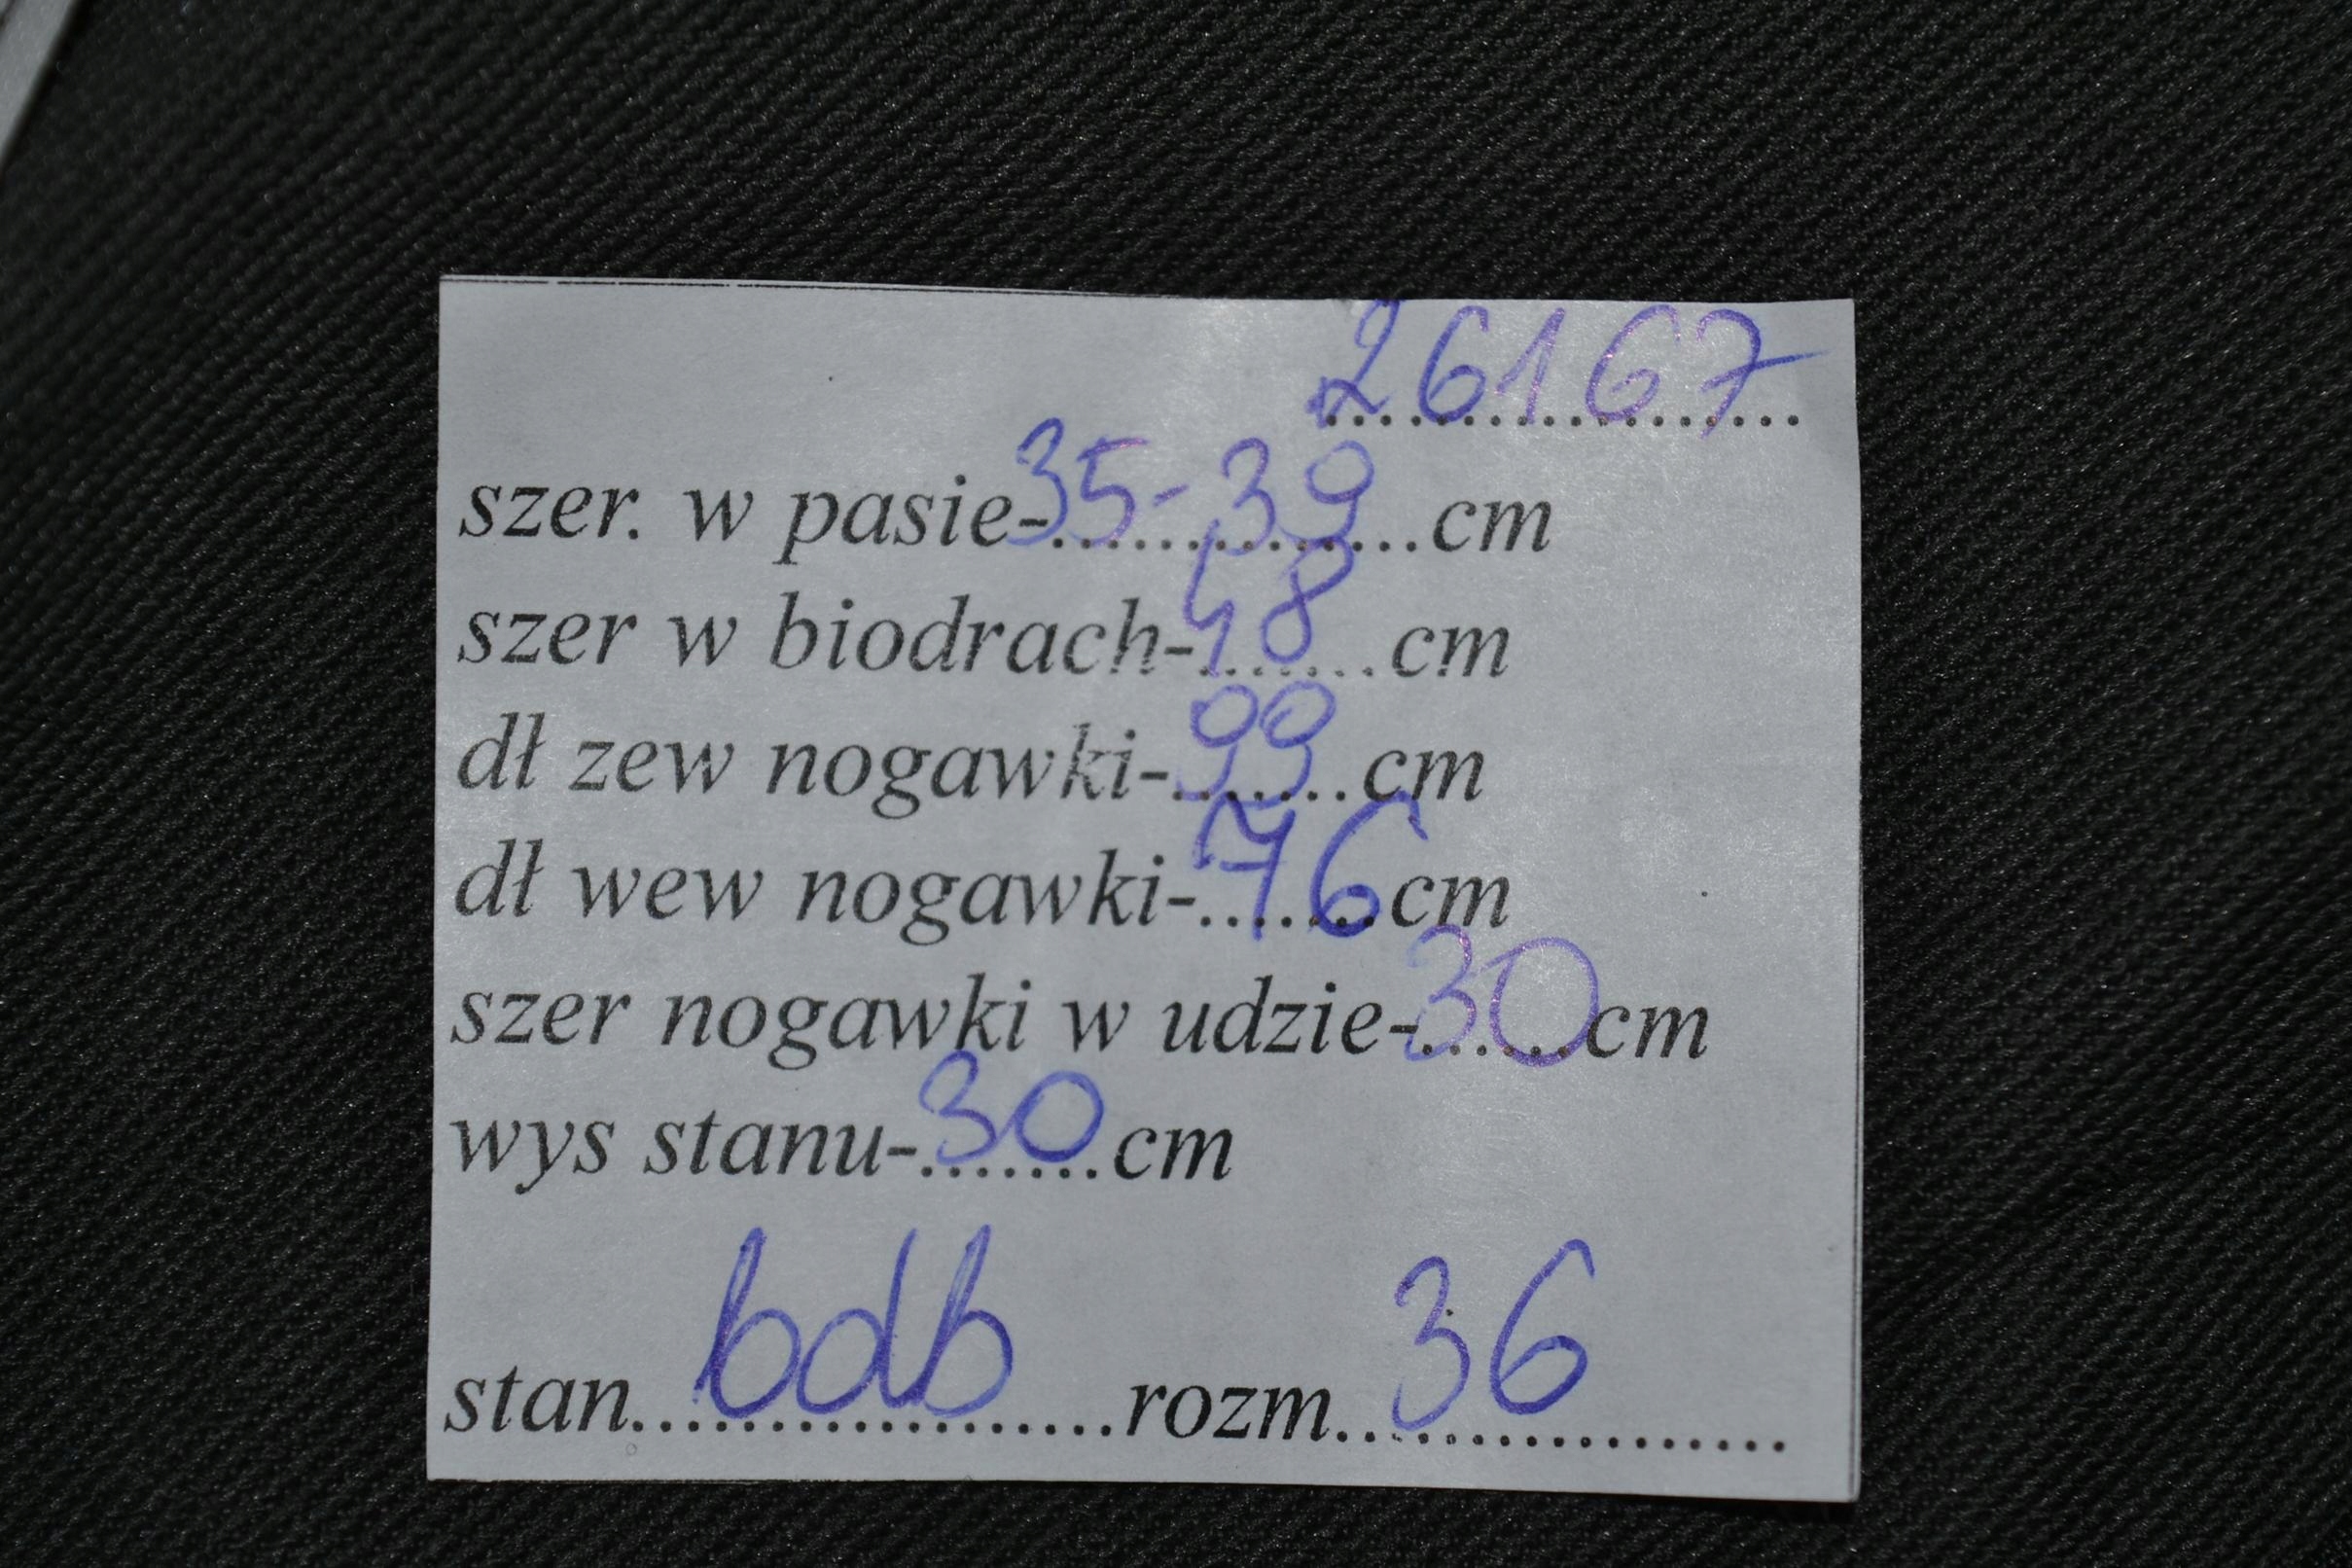 26167
szer. w pasie-35-39...cm
szer w biodrach-48...cm
dł zew nogawki-99...cm
dł wew nogawki-76cm
szer nogawki w udzie-30cm
wys stanu-30cm
stan...bdb...rozm...36...